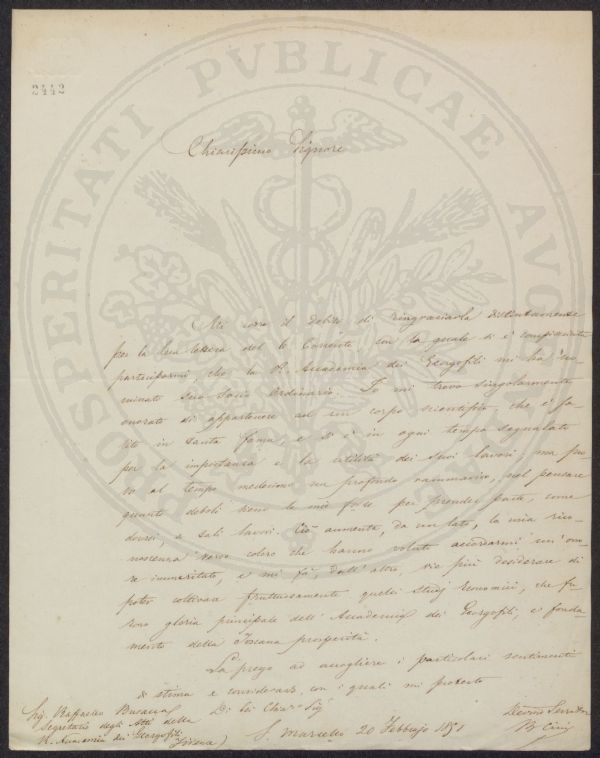 2442
PROSPERITATI PVBLICAE AVGENDAE
Chiarissimo Signore
Mi corre il debito di ringraziarla distintamente
per la Sua lettera del 6 Corrente, con la quale si è compiaciuta
parteciparmi, che la Rl. Accademia dei Georgofili mi ha no-
minato suo Socio Ordinario. Io mi trovo singolarmente
onorato di appartenere ad un corpo scientifico, che è sa-
lito in tanta fama, e si è in ogni tempo segnalato
per la importanza e la utilità dei suoi lavori; ma pro-
vo al tempo medesimo un profondo rammarico, nel pensare
quanto deboli sieno le mie forze per prender parte, come
dovrei, a tali lavori. Ciò aumenta, da un lato, la mia rico-
noscenza verso coloro che hanno voluto accordarmi un'ono-
re immeritato, e mi fà, dall'altro, vie più desiderare di
poter coltivare fruttuosamente quelli studj economici, che fu-
rono gloria principale dell'Accademia dei Georgofili, e fonda-
mento della Toscana prosperità.
La prego ad accogliere i particolari sentimenti
di stima e considerazione, con i quali mi protesto
Di Lei Chiar. Sig.
Sig. Raffaello Busacca
Segretario degli Atti della
R. Accademia dei Georgofili
Firenze)
S. Marcello 20 Febbrajo 1851
Devmo Servitore
Cini